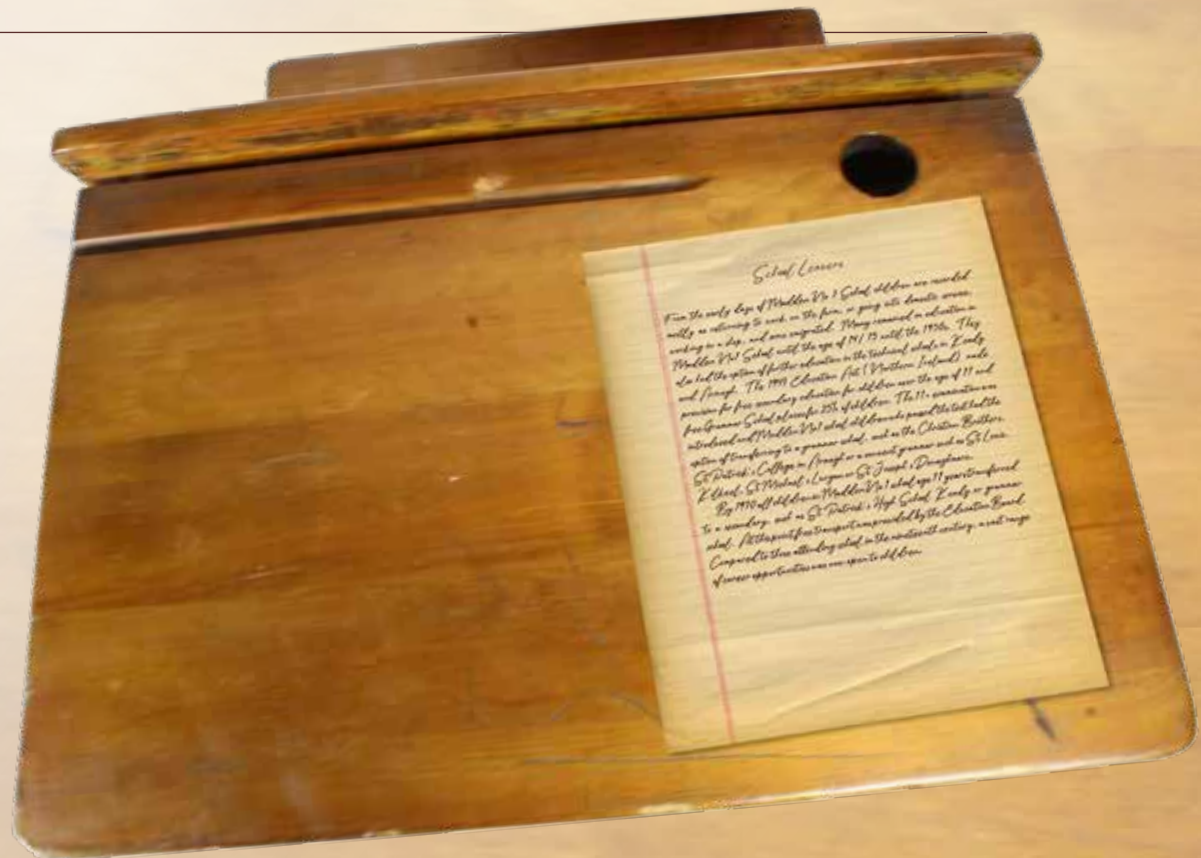 School Leavers
From the early days of Madden No 1 School children are recorded
mostly as returning to work on the farm, or going into domestic service,
working in a shop, and some emigrated. Many remained in education in
Madden No1 School until the age of 14/ 15 until the 1950s. They
also had the option of further education in the technical schools in Keady
and Armagh. The 1947 Education Act ( Northern Ireland) made
provision for free secondary education for children over the age of 11 and
free Grammar School places for 25% of children. The 11+ examination was
introduced and Madden No1 school children who passed the test had the
option of transferring to a grammar school, such as the Christian Brothers,
St Patrick's College in Armagh or a convent grammar such as St Louis
Kilkeel, St Michael's Lurgan or St Joseph's Donaghmore.
By 1970 all children in Madden No 1 school age 11 years transferred
to a secondary, such as St Patrick's High School Keady or grammar
school. At this point free transport was provided by the Education Board.
Compared to those attending school in the nineteenth century, a vast range
of career opportunities was now open to children.